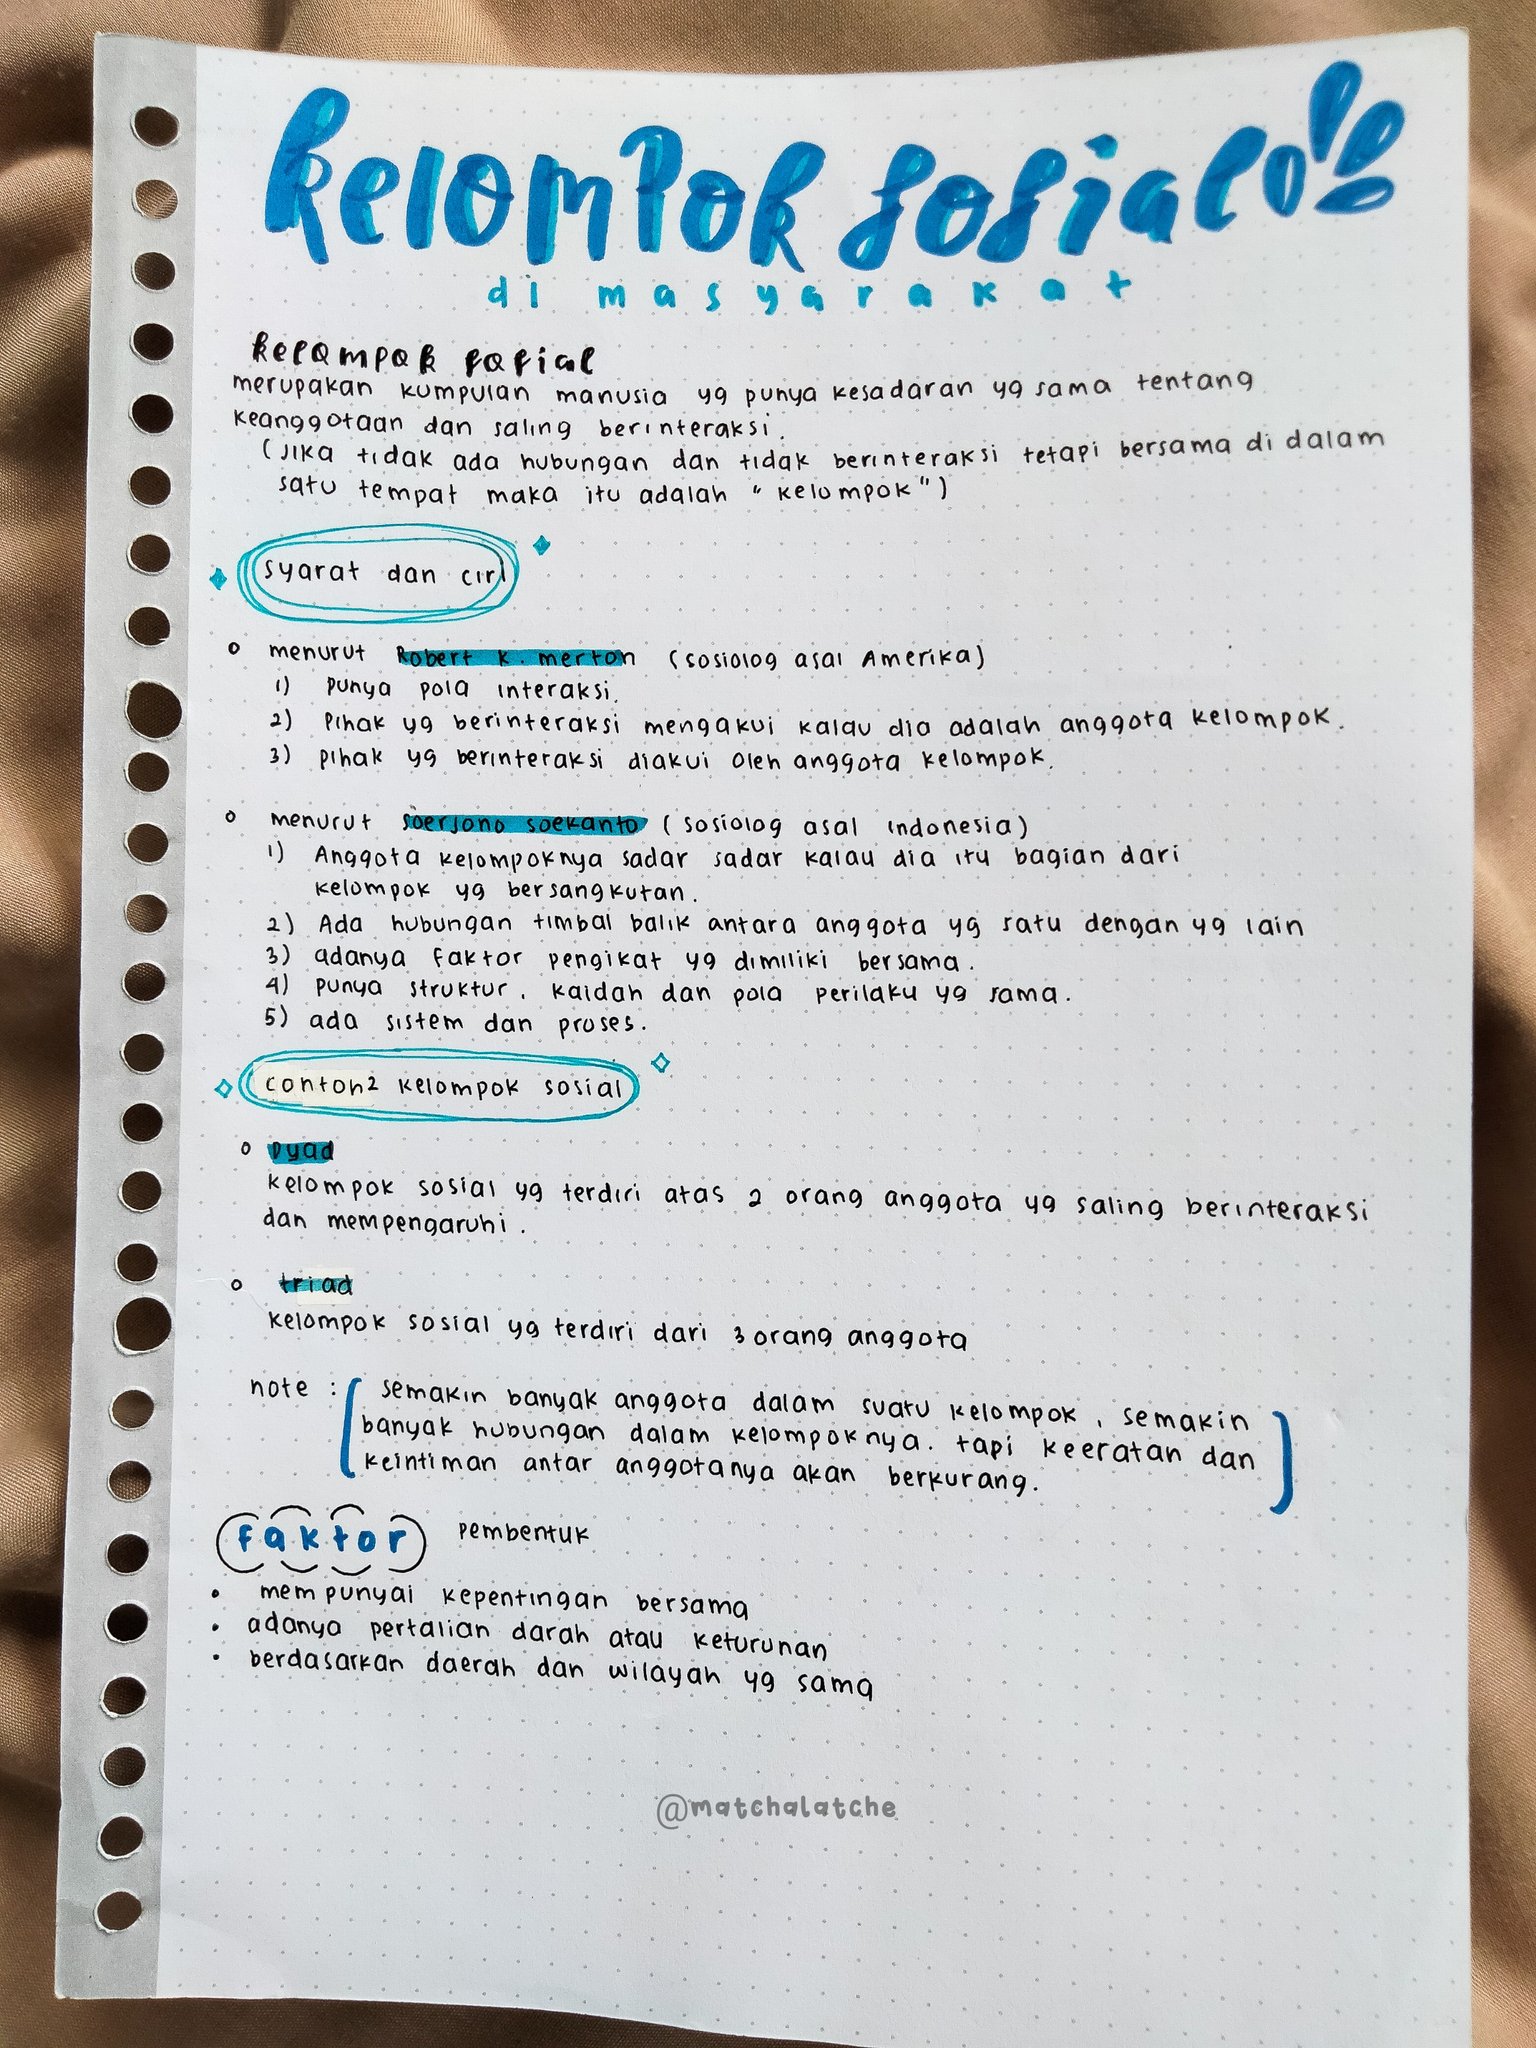 kelompok sosial
di masyarakat
kelompok sosial
merupakan kumpulan manusia yg punya kesadaran yg sama tentang
keanggotaan dan saling berinteraksi.
(jika tidak ada hubungan dan tidak berinteraksi tetapi bersama di dalam
satu tempat maka itu adalah "kelompok")
syarat dan ciri
menurut Robert K. merton (sosiolog asal Amerika)
1) punya pola interaksi.
2) Pihak yg berinteraksi mengakui kalau dia adalah anggota kelompok.
3) pihak yg berinteraksi diakui oleh anggota kelompok.
menurut soerjono soekanto (sosiolog asal indonesia)
1) Anggota kelompoknya sadar sadar kalau dia itu bagian dari
kelompok yg bersangkutan.
2) Ada hubungan timbal balik antara anggota yg satu dengan yg lain
3) adanya faktor pengikat yg dimiliki bersama.
4) punya struktur, kaidah dan pola perilaku yg sama.
5) ada sistem dan proses.
contoh2 kelompok sosial
Dyad
kelompok sosial yg terdiri atas 2 orang anggota yg saling berinteraksi
dan mempengaruhi.
triad
kelompok sosial yg terdiri dari 3 orang anggota
note : semakin banyak anggota dalam suatu kelompok, semakin
banyak hubungan dalam kelompoknya. tapi keeratan dan
keintiman antar anggotanya akan berkurang.
faktor pembentuk
• mempunyai kepentingan bersama
• adanya pertalian darah atau keturunan
• berdasarkan daerah dan wilayah yg sama
@matchalatche